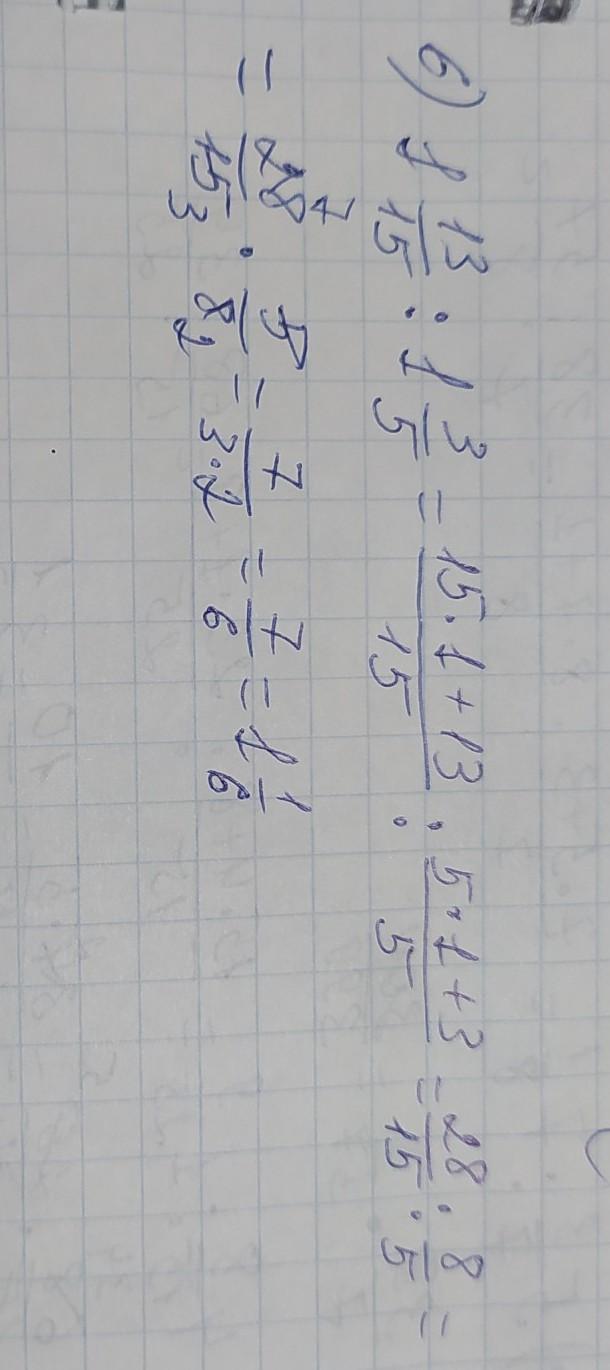 6) 1 13/15 : 1 3/5 = (15·1+13)/15 : (5·1+3)/5 = 28/15 : 8/5 =
= 28 7/15 3 · 5/8 2 = 7/(3·2) = 7/6 = 1 1/6